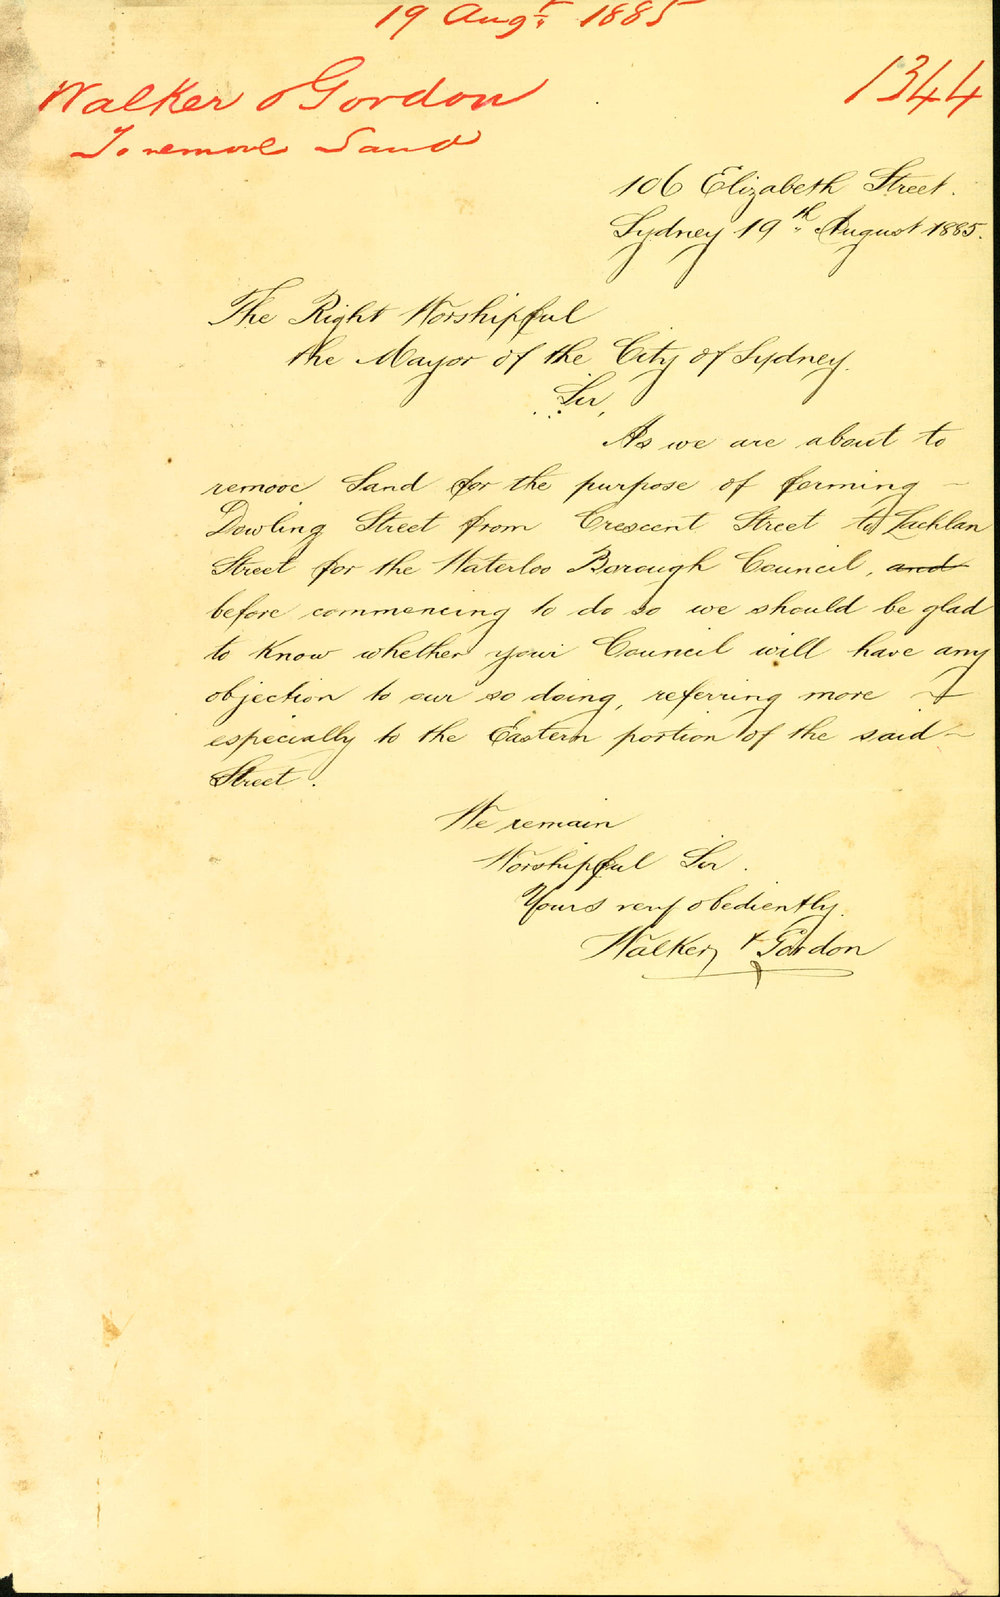 19 Augt 1885
Walker & Gordon
1344
To remove Sand
106 Elizabeth Street.
Sydney 19th August 1885.
The Right Worshipful
the Mayor of the City of Sydney.
Sir,
As we are about to
remove Sand for the purpose of forming
Dowling Street from Crescent Street to Lachlan
Street for the Waterloo Borough Council, and
before commencing to do so we should be glad
to know whether your Council will have any
objection to our so doing, referring more
especially to the Eastern portion of the said
Street.
We remain
Worshipful Sir.
Yours very obediently.
Walker & Gordon